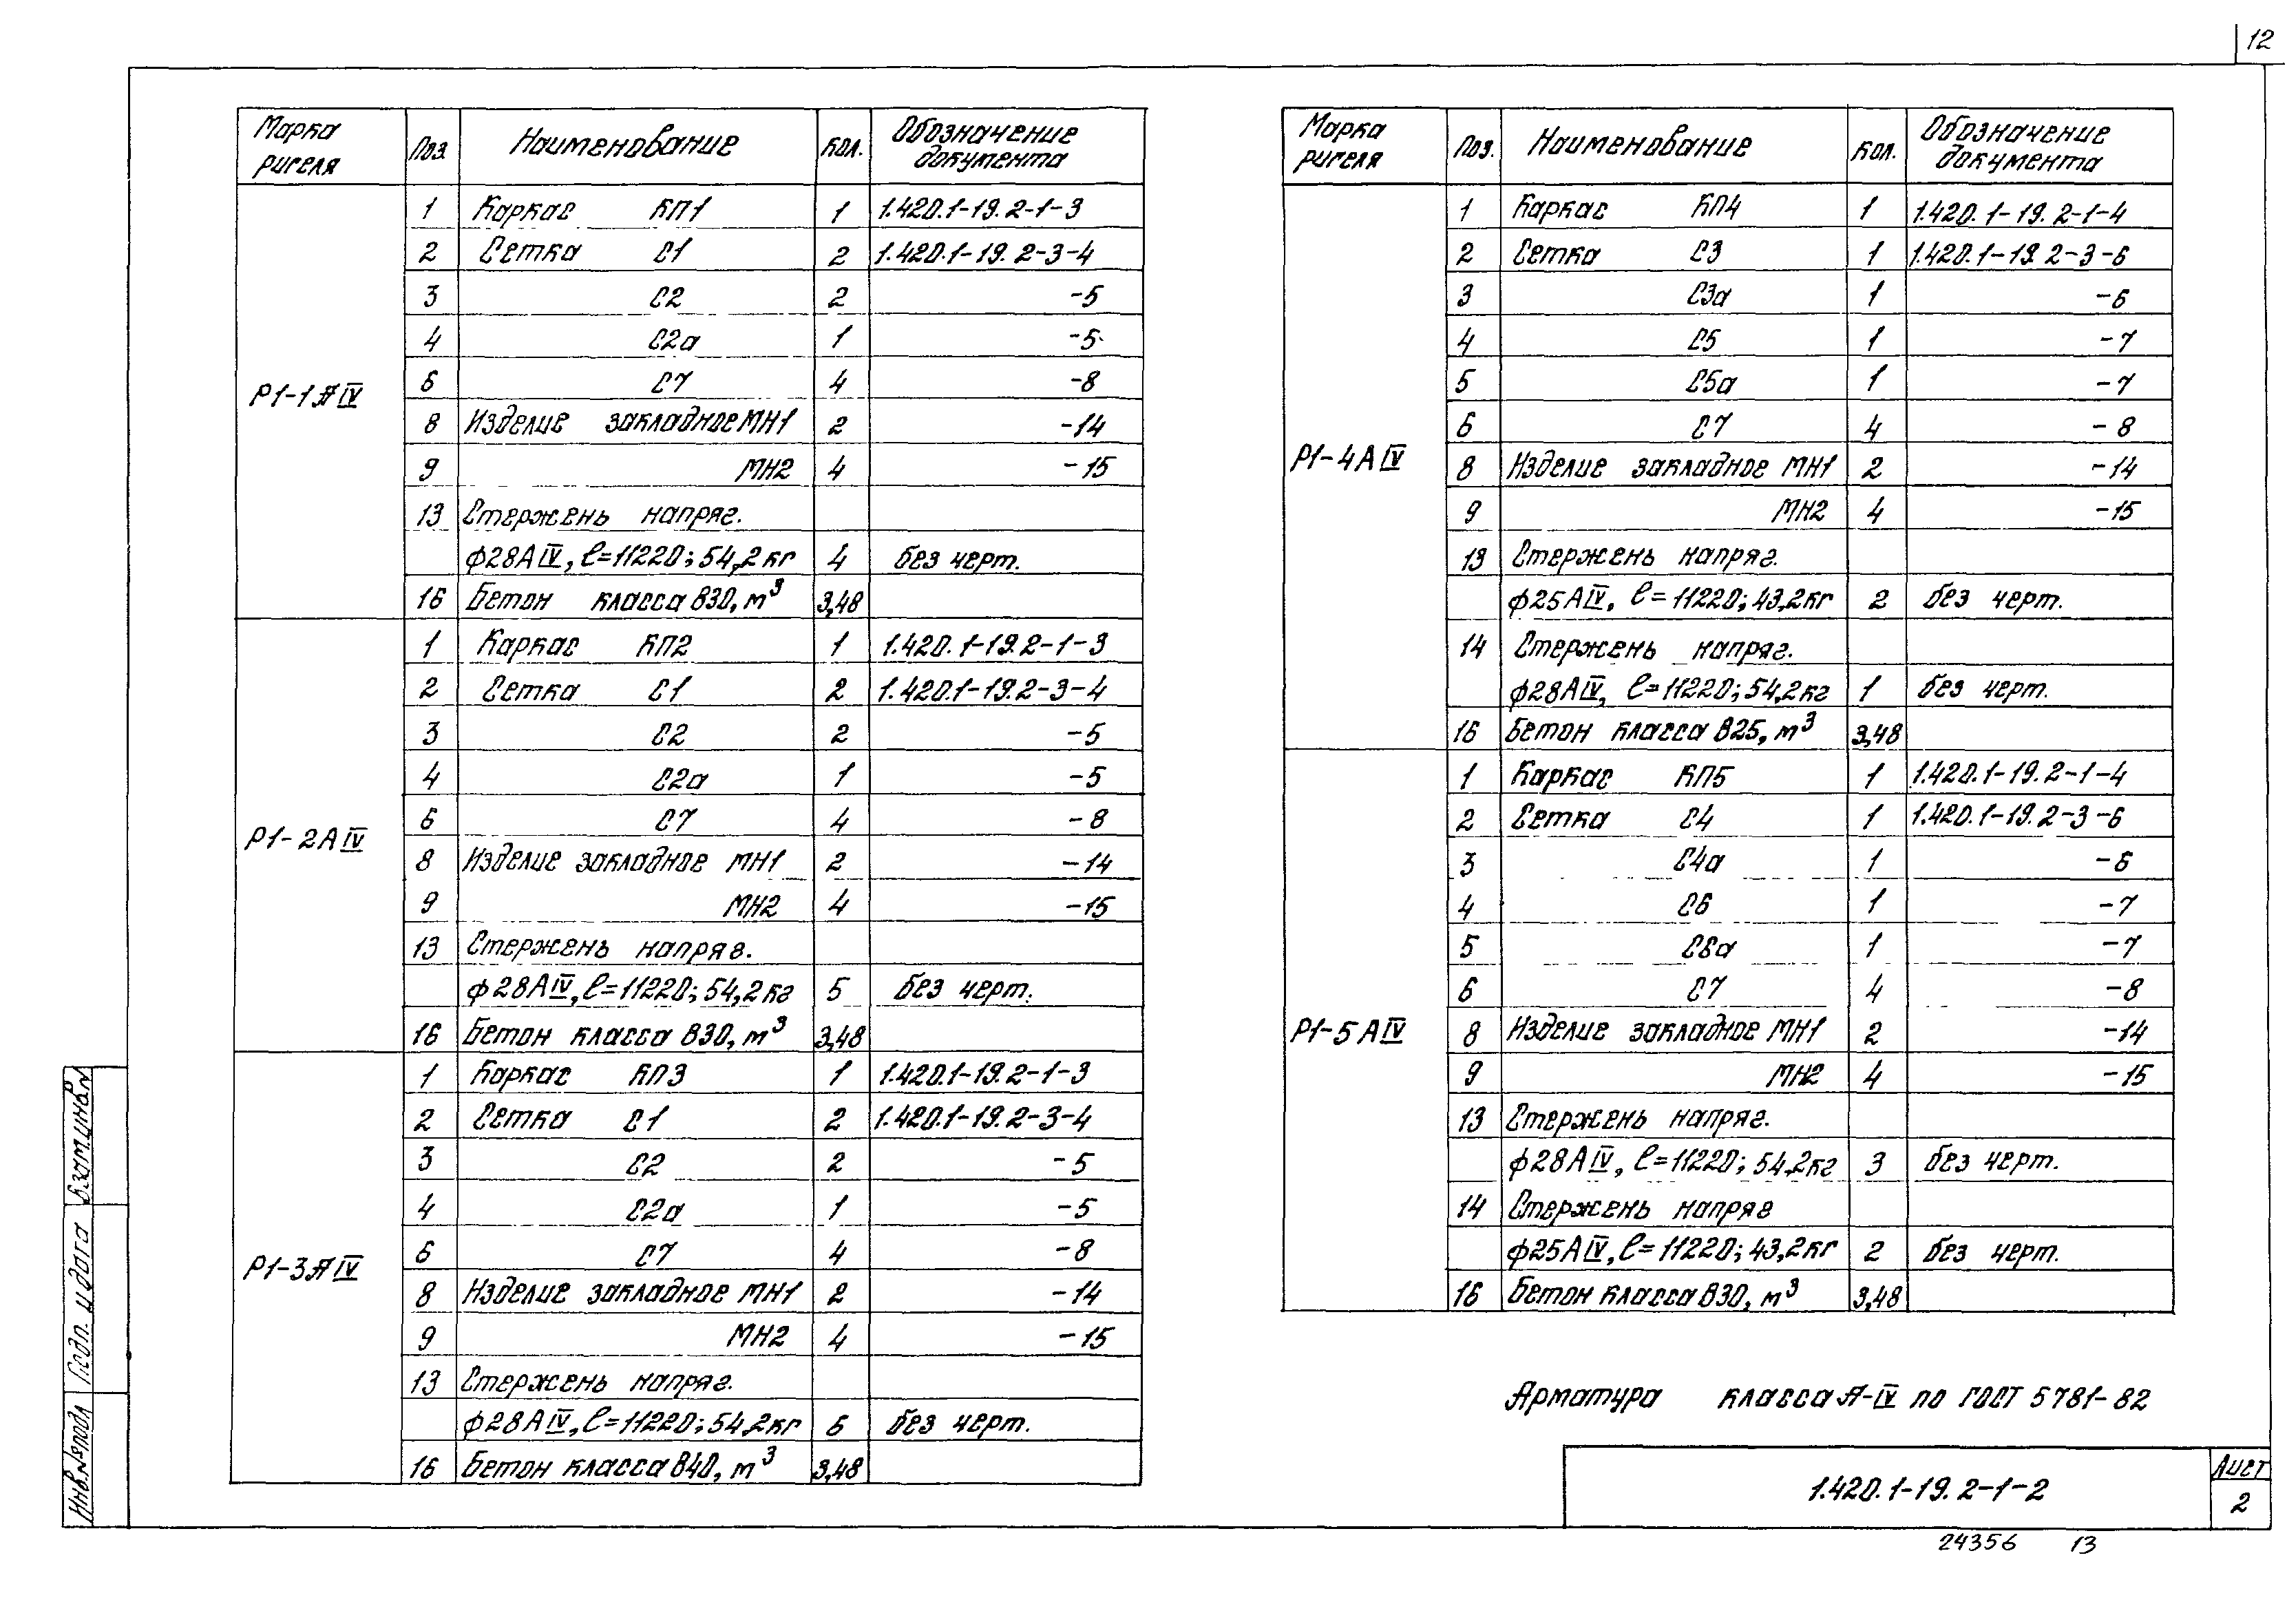 12
Марка ригеля Поз. Наименование Кол. Обозначение документа
Р1-1АIV
1 Каркас КП1 1 1.420.1-19.2-1-3
2 Сетка С1 2 1.420.1-19.2-3-4
3 С2 2 -5
4 С2а 1 -5
6 С7 4 -8
8 Изделие закладное МН1 2 -14
9 МН2 4 -15
13 Стержень напряг.
ф28АIV, ℓ=11220; 54,2кг 4 без черт.
16 Бетон класса В30, м³ 3,48
Р1-2АIV
1 Каркас КП2 1 1.420.1-19.2-1-3
2 Сетка С1 2 1.420.1-19.2-3-4
3 С2 2 -5
4 С2а 1 -5
6 С7 4 -8
8 Изделие закладное МН1 2 -14
9 МН2 4 -15
13 Стержень напряг.
ф28АIV, ℓ=11220; 54,2кг 5 без черт.
16 Бетон класса В30, м³ 3,48
Р1-3АIV
1 Каркас КП3 1 1.420.1-19.2-1-3
2 Сетка С1 2 1.420.1-19.2-3-4
3 С2 2 -5
4 С2а 1 -5
6 С7 4 -8
8 Изделие закладное МН1 2 -14
9 МН2 4 -15
13 Стержень напряг.
ф28АIV, ℓ=11220; 54,2кг 6 без черт.
16 Бетон класса В40, м³ 3,48
Марка ригеля Поз. Наименование Кол. Обозначение документа
Р1-4АIV
1 Каркас КП4 1 1.420.1-19.2-1-4
2 Сетка С3 1 1.420.1-19.2-3-6
3 С3а 1 -6
4 С5 1 -7
5 С5а 1 -7
6 С7 4 -8
8 Изделие закладное МН1 2 -14
9 МН2 4 -15
13 Стержень напряг.
ф25АIV, ℓ=11220; 43,2кг 2 без черт.
14 Стержень напряг.
ф28АIV, ℓ=11220; 54,2кг 1 без черт.
16 Бетон класса В25, м³ 3,48
Р1-5АIV
1 Каркас КП5 1 1.420.1-19.2-1-4
2 Сетка С4 1 1.420.1-19.2-3-6
3 С4а 1 -6
4 С6 1 -7
5 С6а 1 -7
6 С7 4 -8
8 Изделие закладное МН1 2 -14
9 МН2 4 -15
13 Стержень напряг.
ф28АIV, ℓ=11220; 54,2кг 3 без черт.
14 Стержень напряг
ф25АIV, ℓ=11220; 43,2кг 2 без черт.
16 Бетон класса В30, м³ 3,48
Арматура класса А-IV по ГОСТ 5781-82
1.420.1-19.2-1-2
Лист
2
24356 13
Взам.инв.N
Подп. и дата
Инв.№подл